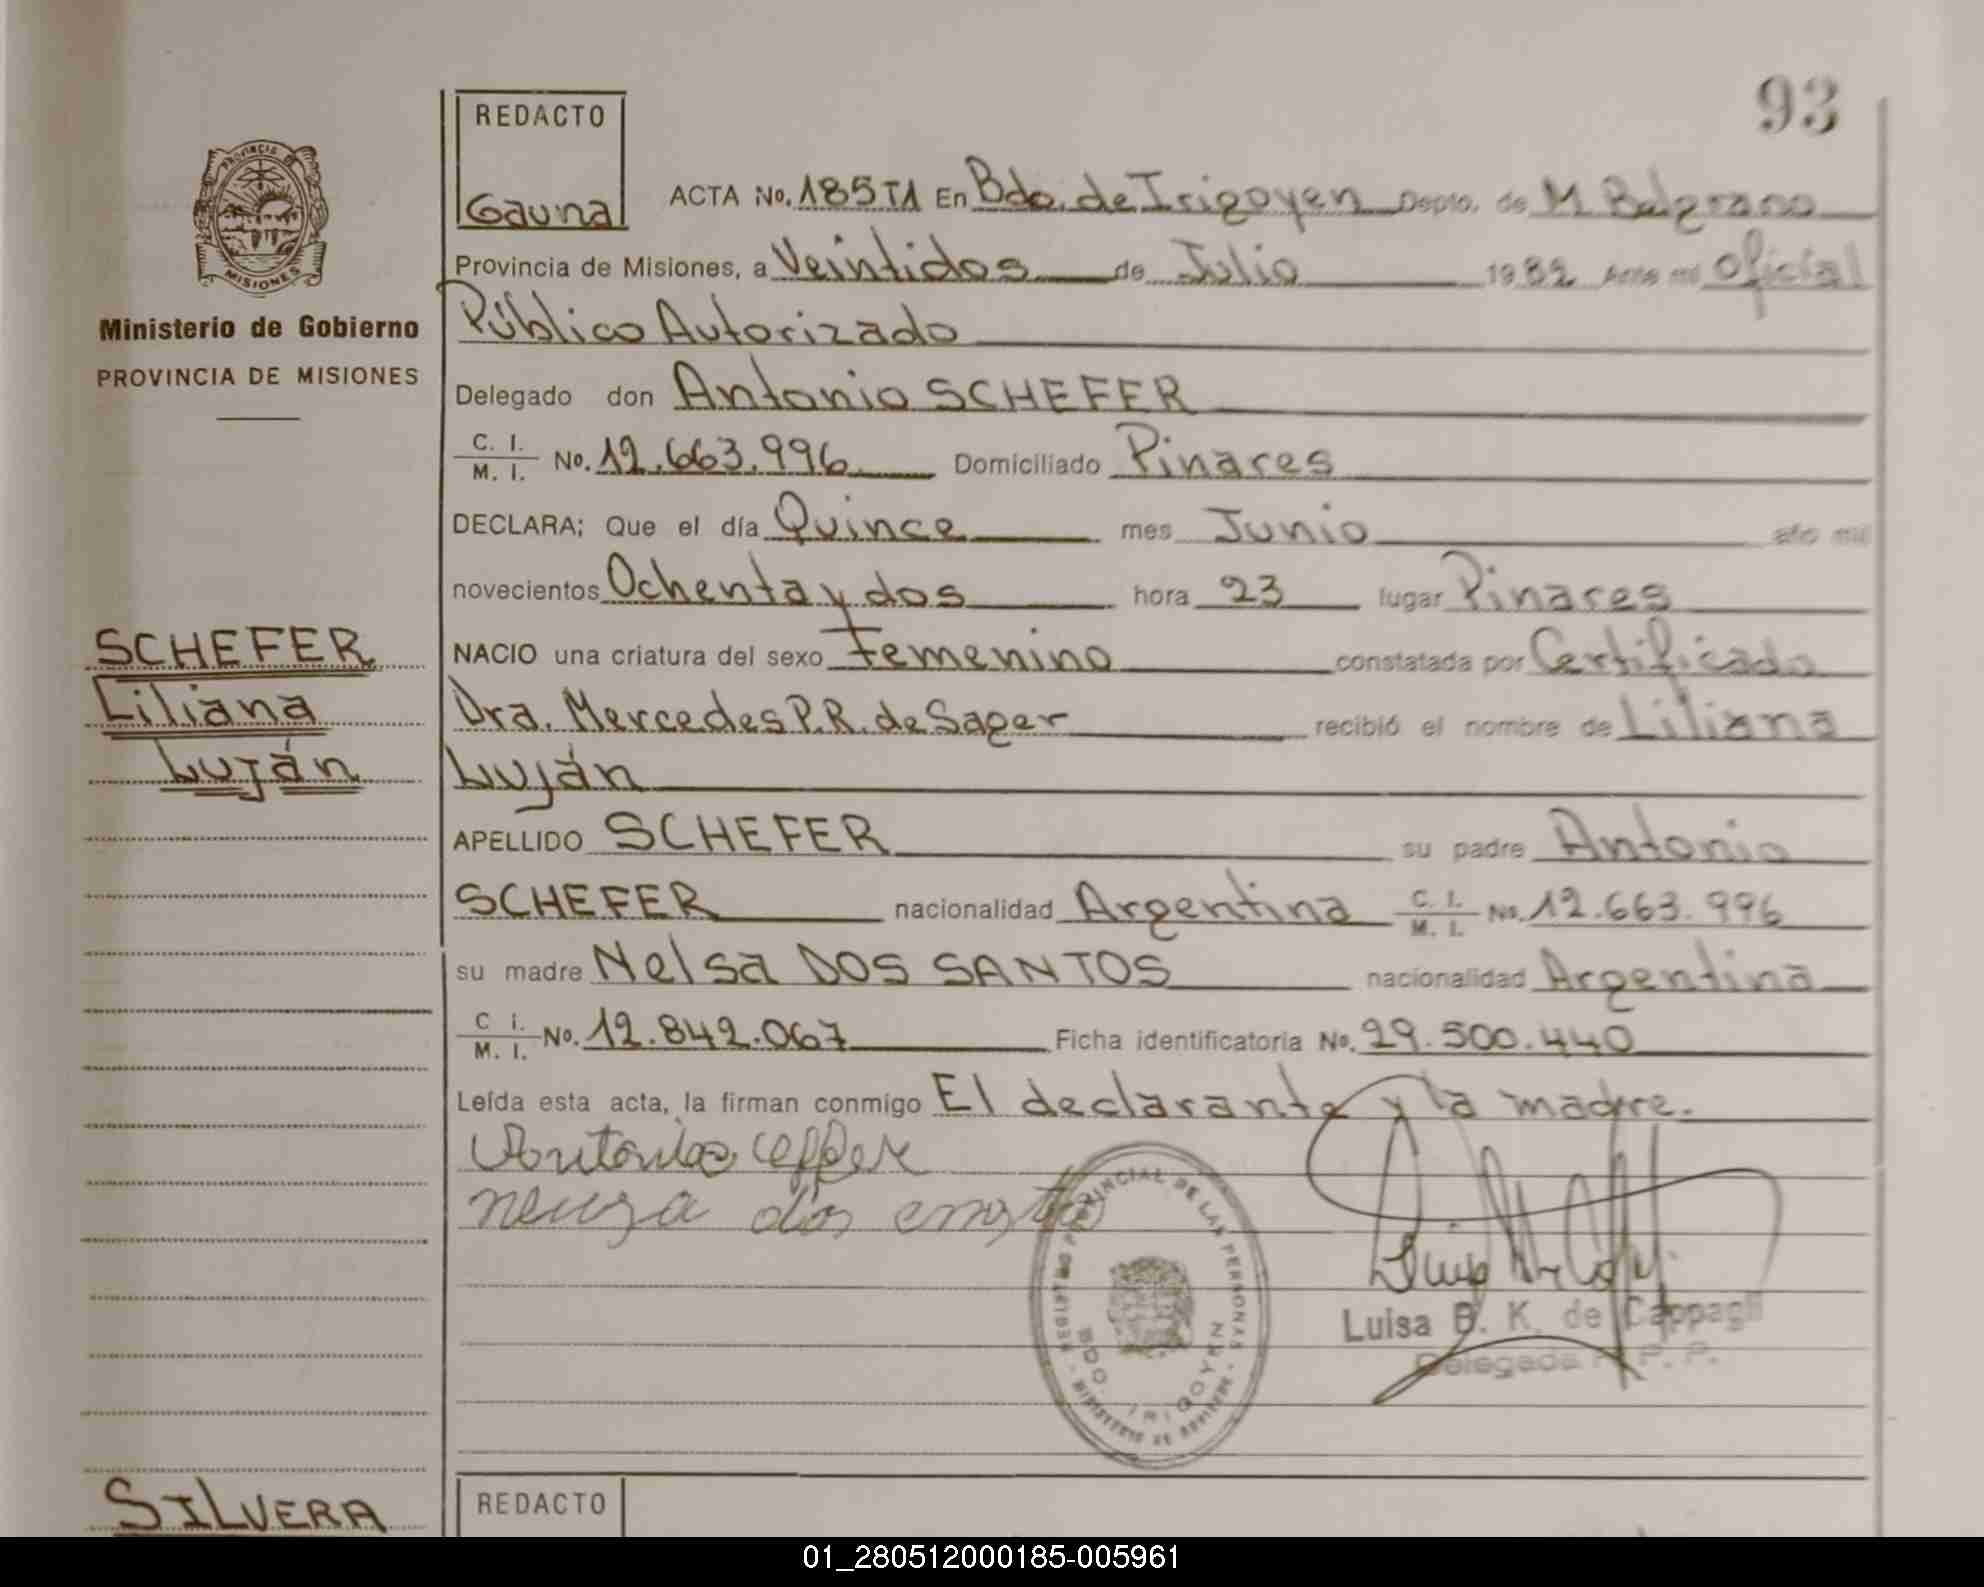 93
REDACTO
Gauna
ACTA No. 185T1 En Bdo. de Irigoyen Depto. de M. Belgrano
PROVINCIA DE MISIONES
Ministerio de Gobierno
PROVINCIA DE MISIONES
Provincia de Misiones, a Veintidos de Julio 1982 Ante mi Oficial
Público Autorizado
Delegado don Antonio SCHEFER
C. I. / M. I. No. 12.663.996 Domiciliado Pinares
DECLARA; Que el día Quince mes Junio año mil
novecientos Ochenta y dos hora 23 lugar Pinares
SCHEFER
Liliana
Luján
NACIO una criatura del sexo Femenino constatada por Certificado
Dra. Mercedes P.R. de Sager recibió el nombre de Liliana
Luján
APELLIDO SCHEFER su padre Antonio
SCHEFER nacionalidad Argentina C. I. / M. I. No. 12.663.996
su madre Nelsa DOS SANTOS nacionalidad Argentina
C I. / M. I. No. 12.842.067 Ficha identificatoria No. 29.500.440
Leída esta acta, la firman conmigo El declarante y la madre.
REGISTRO PROVINCIAL DE LAS PERSONAS
BDO. IRIGOYEN
Luisa B. K. de Cappagli
Delegada R. P. P.
SILVERA
REDACTO
01_280512000185-005961